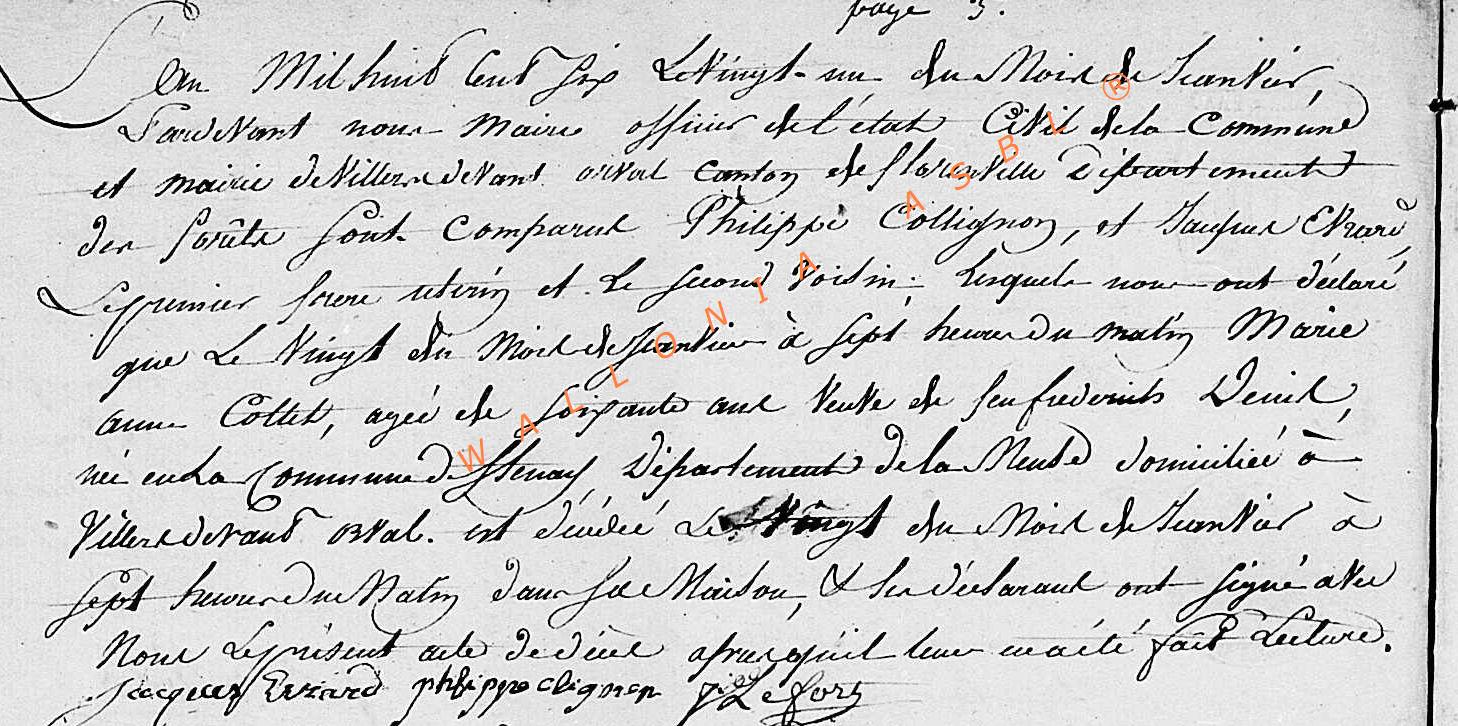 page 3.
L'an Mil huit Cent Six Le Vingt-un du Mois de Janvier,
Pardevant nous Maire officier de l'état Civil de la Commune
et mairie de Villers devant orval Canton de florenville Département
des forêts Sont Comparus Philippe Collignon, et Jacques Evrard,
Le premier frere uterin et Le Second Voisin. Lesquels nous ont déclaré
que Le Vingt du Mois de Janvier à Sept heures du matin Marie
anne Collet, agée de Soixante ans Veuve de feu frederick Denis,
née en La Commune de Stenay Département de la Meuse domiciliée à
Villers devant orval. est décédée Le Vingt du Mois de Janvier à
Sept heures du Matin dans Sa Maison, & Les déclarants ont Signé avec
Nous Le présent acte de décès apres qu'il leur en a été fait Lecture.
jacques Evrard philippe clignon Lefort
WALLONIA ASBL ®